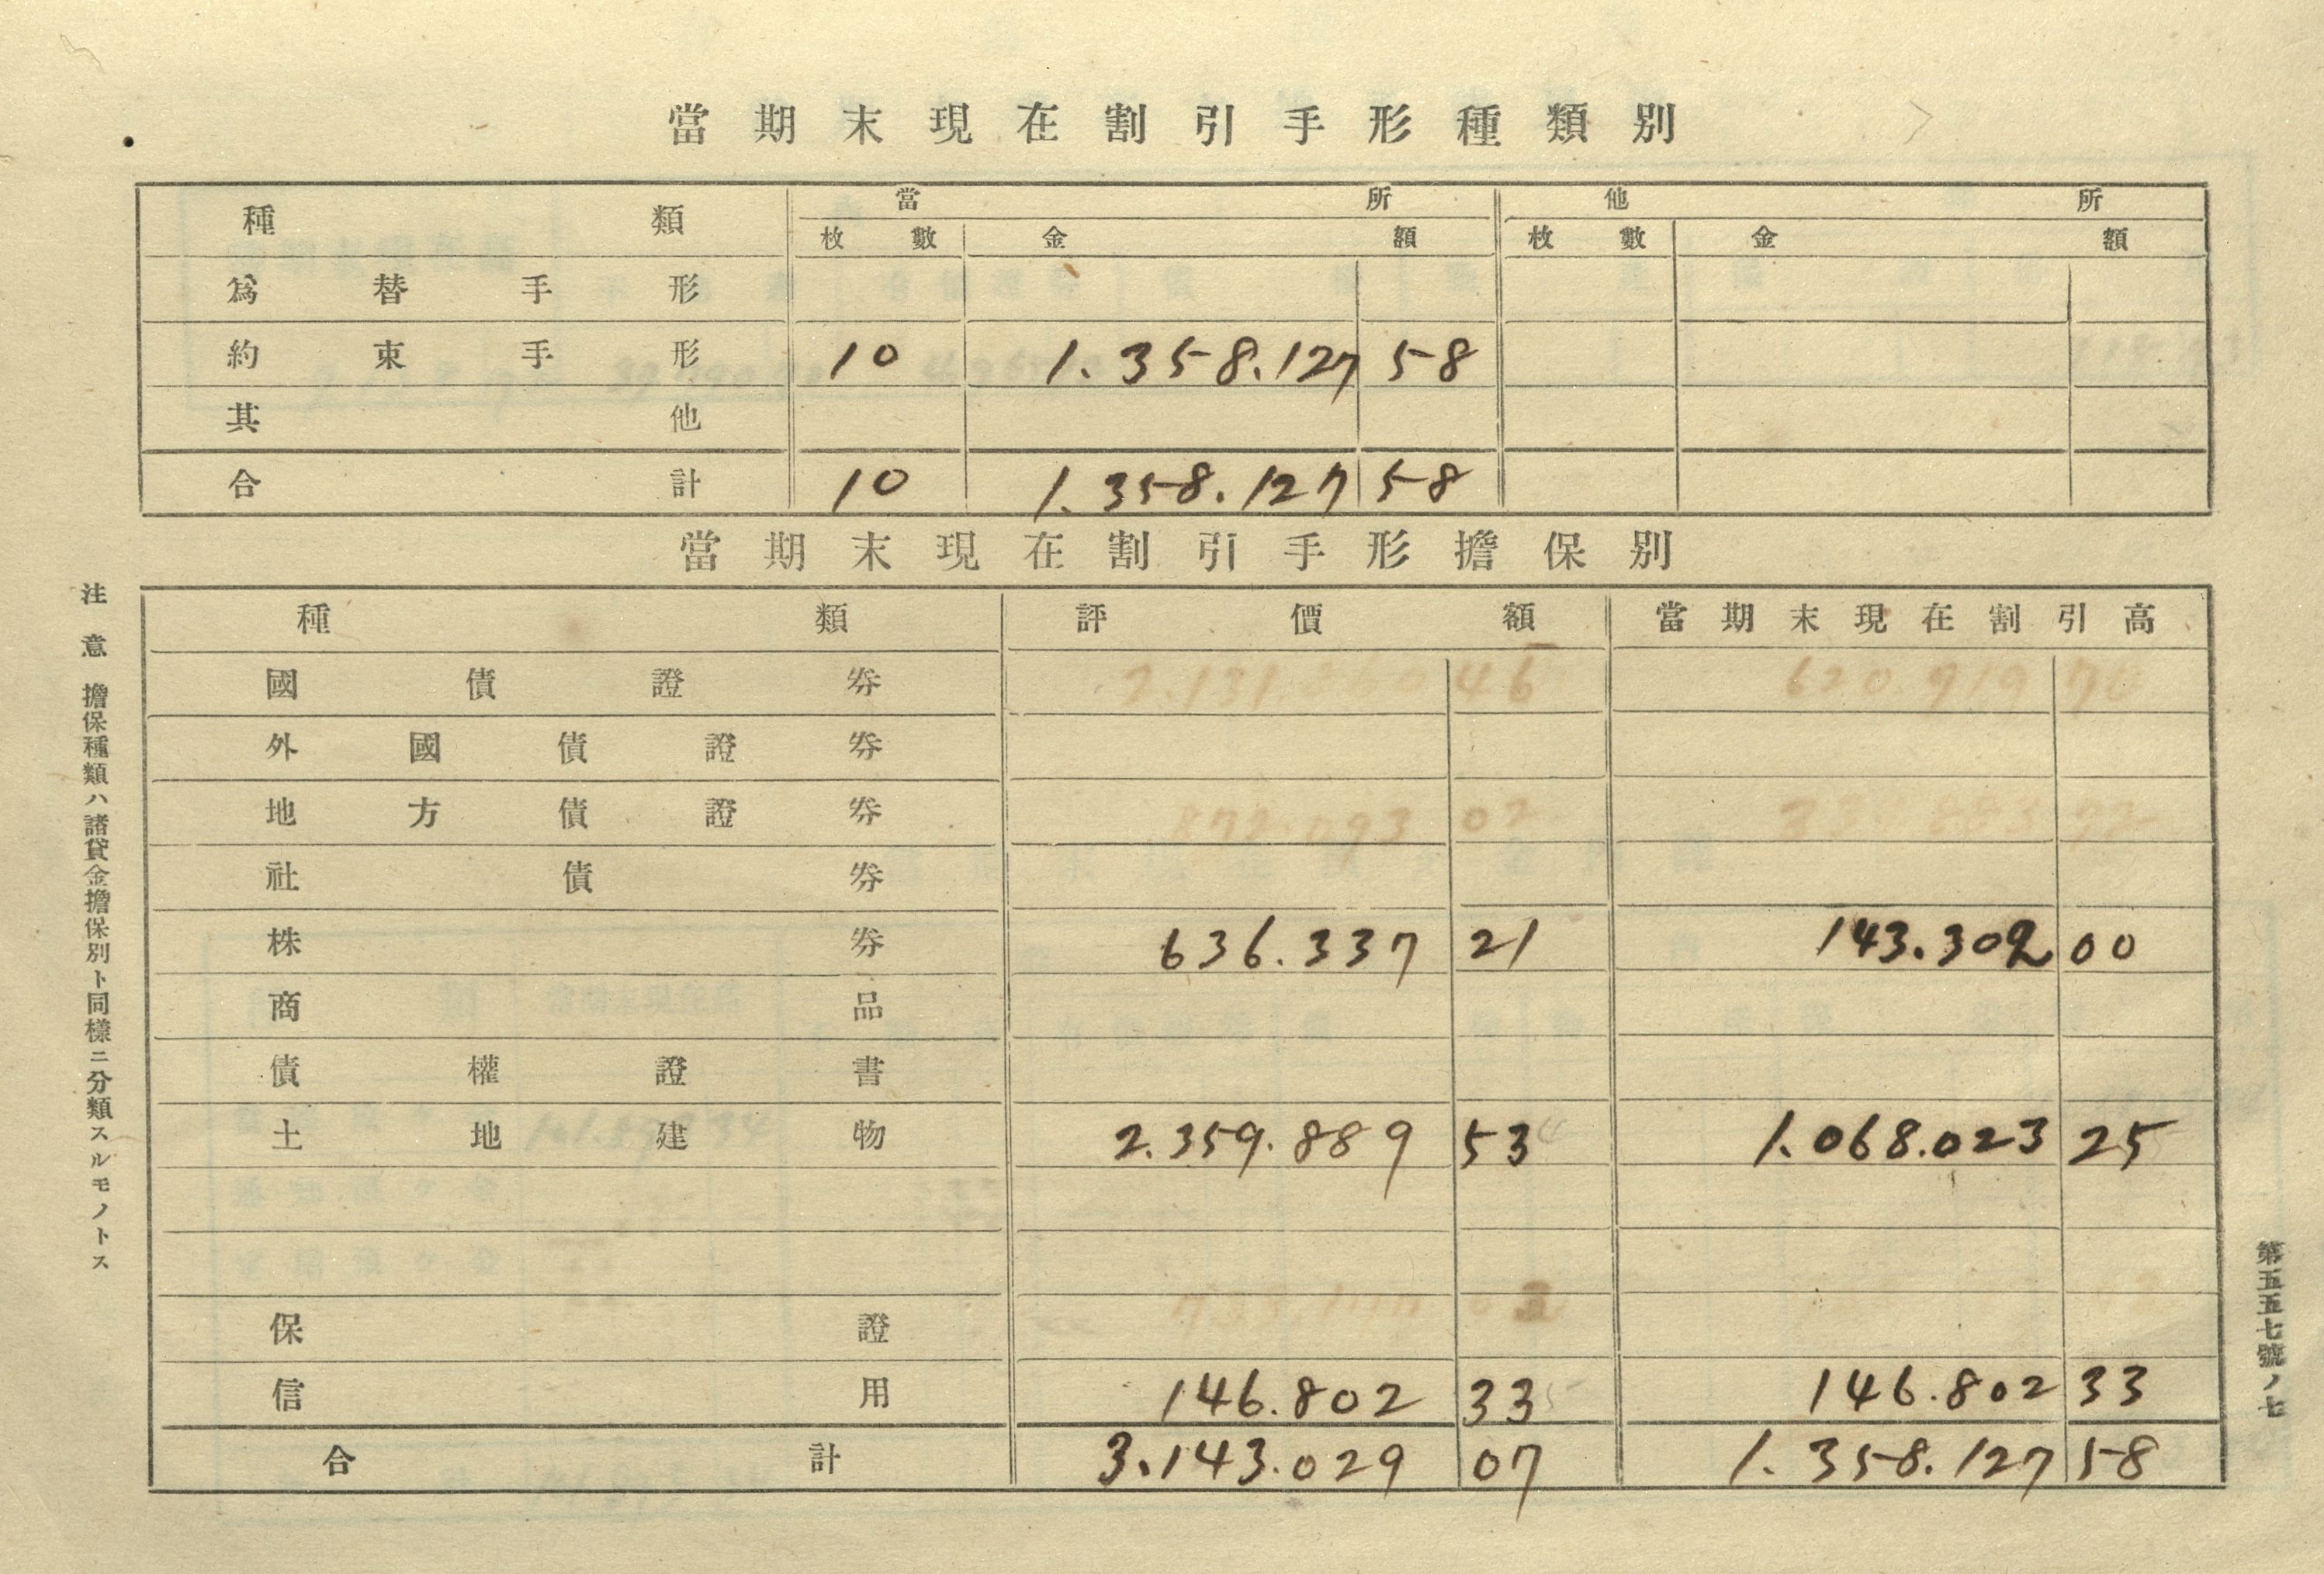 當期末現在割引手形種類別
種類 當所 他所
枚數 金額 枚數 金額
爲替手形
約束手形 10 1.358.127 58
其他
合計 10 1.358.127 58
當期末現在割引手形擔保別
種類 評價額 當期末現在割引高
國債證券
外國債證券
地方債證券
社債券
株券 636.337 21 143.302 00
商品
債權證書
土地建物 2.359.889 53 1.068.023 25
保證
信用 146.802 33 146.802 33
合計 3.143.029 07 1.358.127 58
注意 擔保種類ハ諸貸金擔保別ト同樣ニ分類スルモノトス
第五五七號ノ七